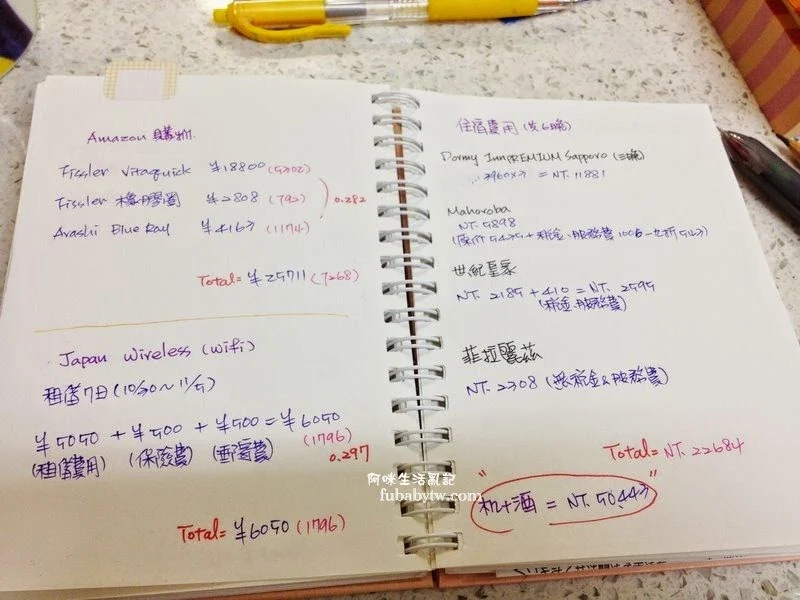 Amazon 購物
Fissler Vitaquick ¥18800 (5302)
Fissler 橡膠圈 ¥2808 (792)
0.282
Arashi Blue Ray ¥4163 (1174)
Total= ¥25771 (7268)
Japan Wireless (wifi)
租借7日 (10/30~11/5)
¥5050 + ¥500 + ¥500 = ¥6050
(租借費用) (保險費) (郵寄費) (1796)
0.297
Total= ¥6050 (1796)
住宿費用 (共6晚)
Dormy Inn PREMIUM Sapporo (三晚)
3960x3 = NT.11881
Mahoroba
NT.5898
(原價5435+稅金.服務費1006-九折543)
世紀皇家
NT.2185+410=NT.2595
(稅金.服務費)
菲拉麗茲
NT.2308 (稅金&服務費)
Total= NT.22684
"机+酒 = NT.50,443"
阿咪生活亂記
fubabytw.com